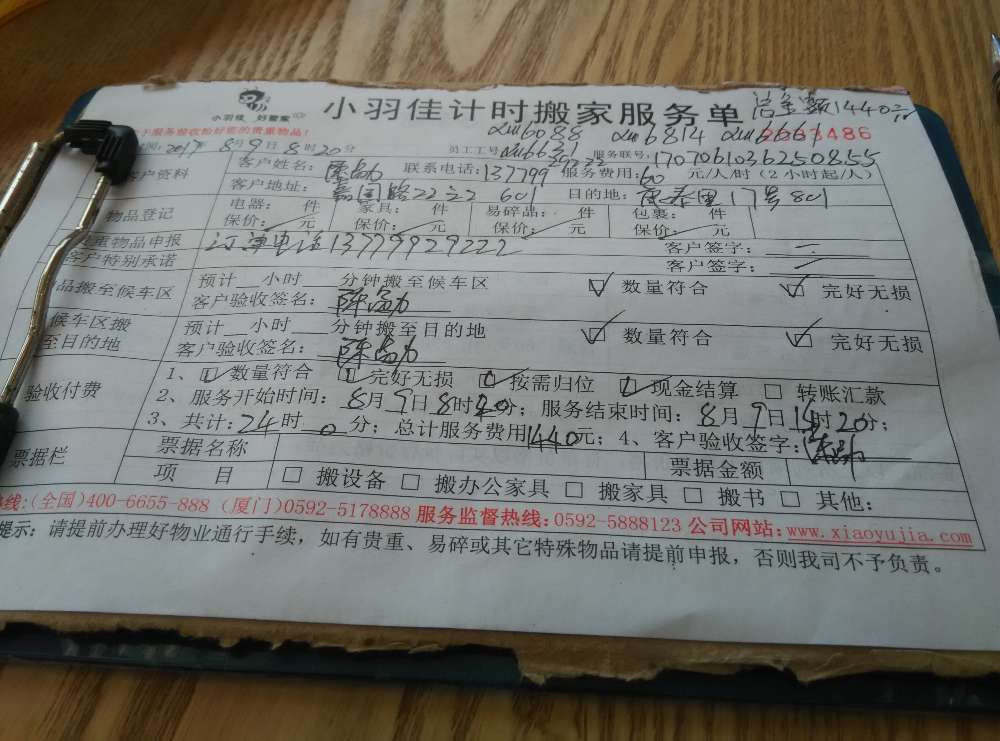 小羽佳 好管家
小羽佳计时搬家服务单
总金额1440元
服务验收给好您的贵重物品!
6088 6814 486
时间: 2017年8月9日8时20分 员工工号 6631 服务联号: 1707061036250855
客户资料 客户姓名: 联系电话: 137799 29222 服务费用: 60 元/人/时 (2小时起/人)
客户地址: 嘉园路22之2 601 目的地: 康泰里17号801
物品登记 电器: 件 家具: 件 易碎品: 件 包裹: 件
保价: 元 保价: 元 保价: 元 保价: 元
重物品申报 订单电话13779929222 客户签字:
客户特别承诺 客户签字:
品搬至候车区 预计__小时___分钟搬至候车区 数量符合 完好无损
客户验收签名:
候车区搬至目的地 预计__小时___分钟搬至目的地 数量符合 完好无损
客户验收签名:
验收付费 1、 数量符合 完好无损 按需归位 现金结算 转账汇款
2、服务开始时间: 8月9日8时20分; 服务结束时间: 8月9日14时20分;
3、共计: 24时 0分; 总计服务费用1440元; 4、客户验收签字:
票据栏 票据名称 票据金额
项 目 搬设备 搬办公家具 搬家具 搬书 其他:
热线:(全国)400-6655-888 (厦门)0592-5178888 服务监督热线: 0592-5888123 公司网站: www.xiaoyujia.com
提示: 请提前办理好物业通行手续, 如有贵重、易碎或其它特殊物品请提前申报, 否则我司不予负责。